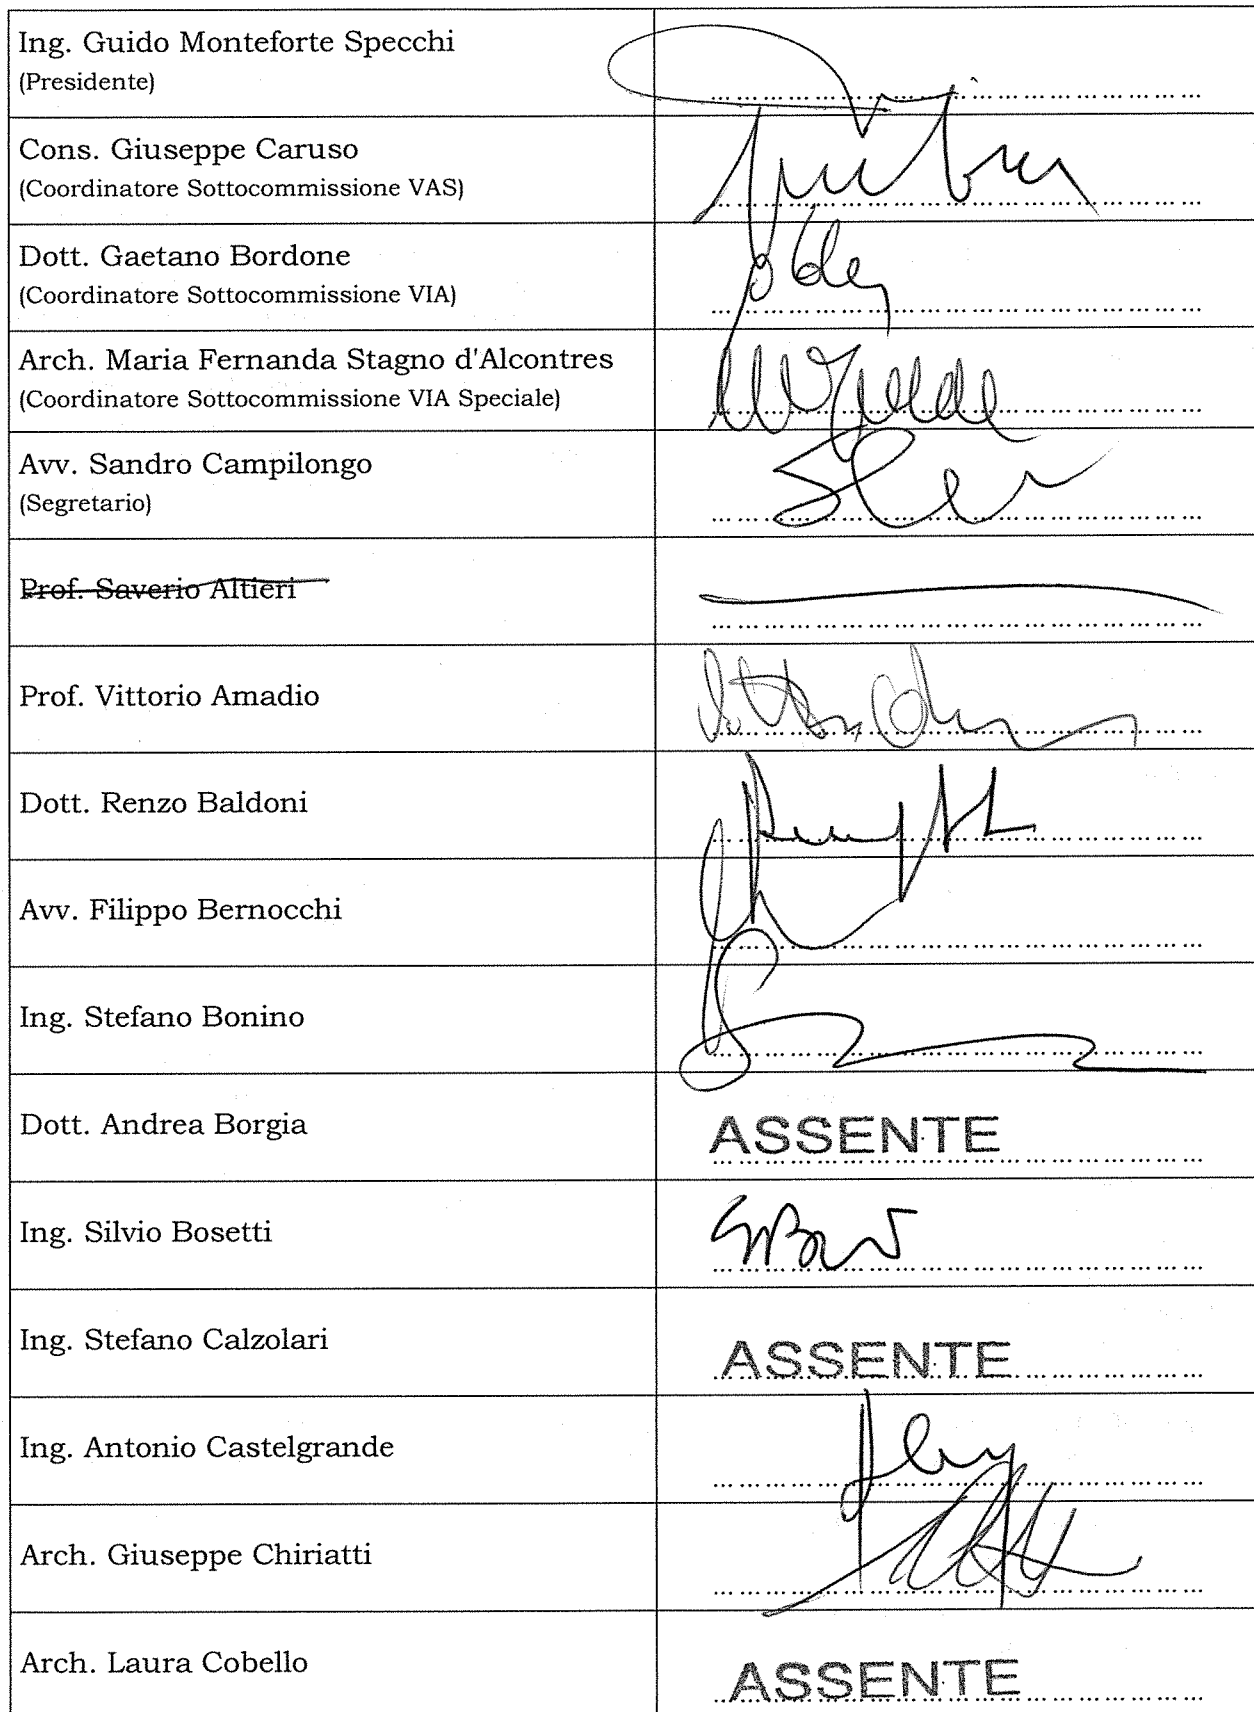 Ing. Guido Monteforte Specchi
(Presidente)
Cons. Giuseppe Caruso
(Coordinatore Sottocommissione VAS)
Dott. Gaetano Bordone
(Coordinatore Sottocommissione VIA)
Arch. Maria Fernanda Stagno d'Alcontres
(Coordinatore Sottocommissione VIA Speciale)
Avv. Sandro Campilongo
(Segretario)
Prof. Saverio Altieri
Prof. Vittorio Amadio
Dott. Renzo Baldoni
Avv. Filippo Bernocchi
Ing. Stefano Bonino
Dott. Andrea Borgia ASSENTE
Ing. Silvio Bosetti
Ing. Stefano Calzolari ASSENTE
Ing. Antonio Castelgrande
Arch. Giuseppe Chiriatti
Arch. Laura Cobello ASSENTE